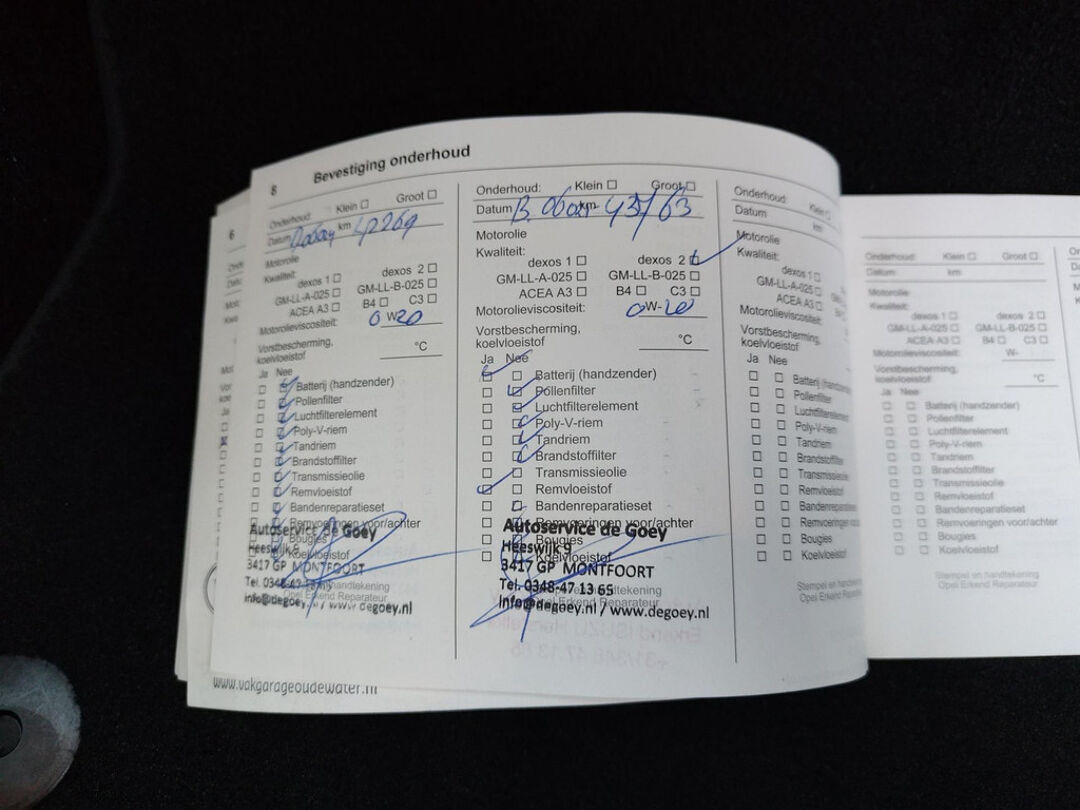 8 Bevestiging onderhoud
Onderhoud: Klein □ Groot □
Datum km 42269
Motorolie
Kwaliteit:
dexos 1 □ dexos 2 □
GM-LL-A-025 □ GM-LL-B-025 □
ACEA A3 □ B4 □ C3 □
Motorolieviscositeit: 0 W 20
Vorstbescherming,
koelvloeistof °C
Ja Nee
Batterij (handzender)
Pollenfilter
Luchtfilterelement
Poly-V-riem
Tandriem
Brandstoffilter
Transmissieolie
Remvloeistof
Bandenreparatieset
Remvoeringen voor/achter
Bougies
Koelvloeistof
Autoservice de Goey
Heeswijk 9
3417 GP MONTFOORT
Tel. 0348-47
handtekening
Opel Erkend Reparateur
info@degoey.nl / www.degoey.nl
Onderhoud: Klein □ Groot □
Datum km
Motorolie
Kwaliteit:
dexos 1 □ dexos 2 □
GM-LL-A-025 □ GM-LL-B-025 □
ACEA A3 □ B4 □ C3 □
Motorolieviscositeit: 0 W-20
Vorstbescherming,
koelvloeistof °C
Ja Nee
Batterij (handzender)
Pollenfilter
Luchtfilterelement
Poly-V-riem
Tandriem
Brandstoffilter
Transmissieolie
Remvloeistof
Bandenreparatieset
Remvoeringen voor/achter
Bougies
Koelvloeistof
Autoservice de Goey
Heeswijk 9
3417 GP MONTFOORT
Tel. 0348-47 13 65
info@degoey.nl / www.degoey.nl
Onderhoud: Klein □
Datum km
Motorolie
Kwaliteit:
dexos 1 □
GM-LL-A-025 □
ACEA A3 □
Motorolieviscositeit:
Vorstbescherming,
koelvloeistof
Ja Nee
Batterij (handzender)
Pollenfilter
Luchtfilterelement
Poly-V-riem
Tandriem
Brandstoffilter
Transmissieolie
Remvloeistof
Bandenreparatieset
Remvoeringen voor/
Bougies
Koelvloeistof
Stempel en handtekening
Opel Erkend Reparateur
Onderhoud: Klein □ Groot □
Datum: km
Motorolie
Kwaliteit:
dexos 1 □ dexos 2 □
GM-LL-A-025 □ GM-LL-B-025 □
ACEA A3 □ B4 □ C3 □
Motorolieviscositeit: W-
Vorstbescherming,
koelvloeistof °C
Ja Nee
Batterij (handzender)
Pollenfilter
Luchtfilterelement
Poly-V-riem
Tandriem
Brandstoffilter
Transmissieolie
Remvloeistof
Bandenreparatieset
Remvoeringen voor/achter
Bougies
Koelvloeistof
Stempel en handtekening
Opel Erkend Reparateur
6
www.vakgarageoudewater.nl